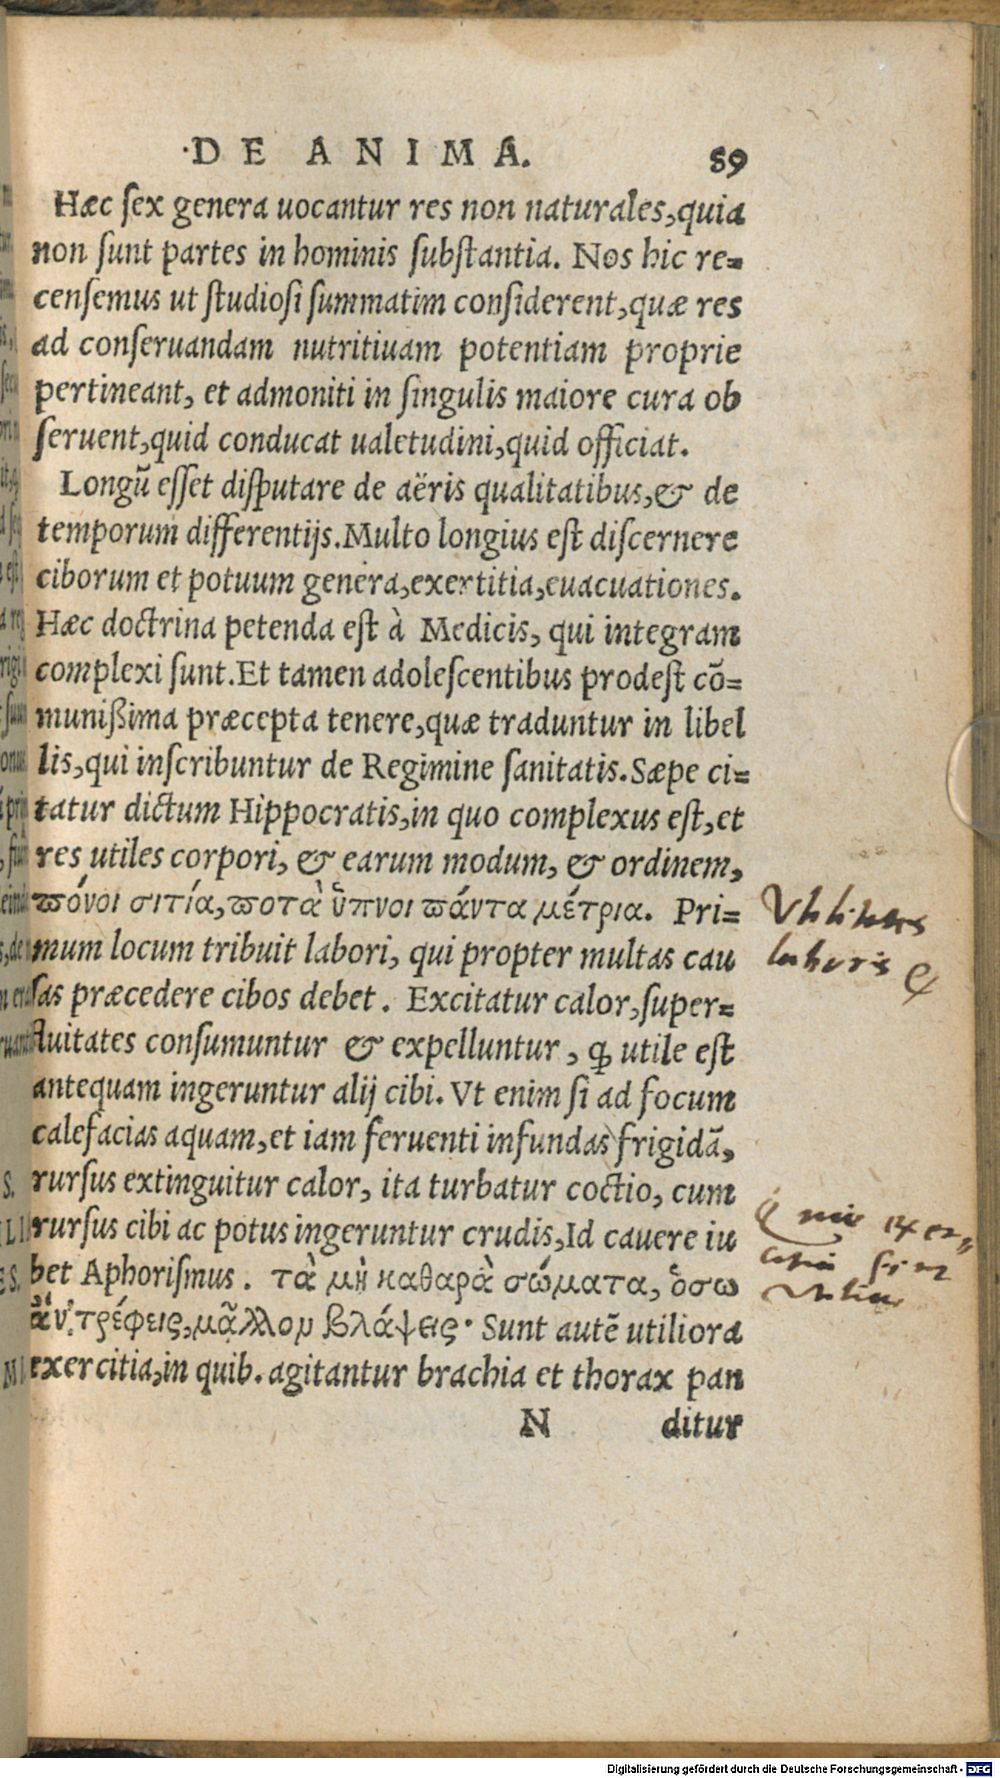 ·DE ANIMA. 89
Hæc ſex genera uocantur res non naturales,quia
non ſunt partes in hominis ſubſtantia. Nos hic re=
cenſemus ut ſtudioſi ſummatim conſiderent,quæ res
ad conſeruandam nutritiuam potentiam proprie
pertineant, et admoniti in ſingulis maiore cura ob
ſeruent,quid conducat ualetudini,quid officiat.
Longũ eſſet diſputare de aëris qualitatibus,& de
temporum differentijs.Multo longius eſt diſcernere
ciborum et potuum genera,exertitia,euacuationes.
Hæc doctrina petenda eſt à Medicis, qui integram
complexi ſunt.Et tamen adoleſcentibus prodeſt cō=
munißima præcepta tenere,quæ traduntur in libel
lis,qui inſcribuntur de Regimine ſanitatis.Sæpe ci=
tatur dictum Hippocratis,in quo complexus eſt,et
res utiles corpori, & earum modum, & ordinem,
ϖόνοι σιτία,ϖοτὰ ὕπνοι ϖάντα μέτρια. Pri=
mum locum tribuit labori, qui propter multas cau
ſas præcedere cibos debet. Excitatur calor,ſuper=
fluitates conſumuntur & expelluntur, ꝙ utile eſt
antequam ingeruntur alij cibi. Vt enim ſi ad focum
calefacias aquam,et iam feruenti infundas frigidā,
rurſus extinguitur calor, ita turbatur coctio, cum
rurſus cibi ac potus ingeruntur crudis,Id cauere iu
bet Aphoriſmus. τὰ μὴ καθαρὰ σώματα, ὅσω
ἂν τρέφεις,μᾶλλον βλάψεις· Sunt autē utiliora
exercitia,in quib. agitantur brachia et thorax pan
N ditur
Vtilitates
laboris &
Quae exer=
citia sint
vtilia
Digitalisierung gefördert durch die Deutsche Forschungsgemeinschaft - DFG